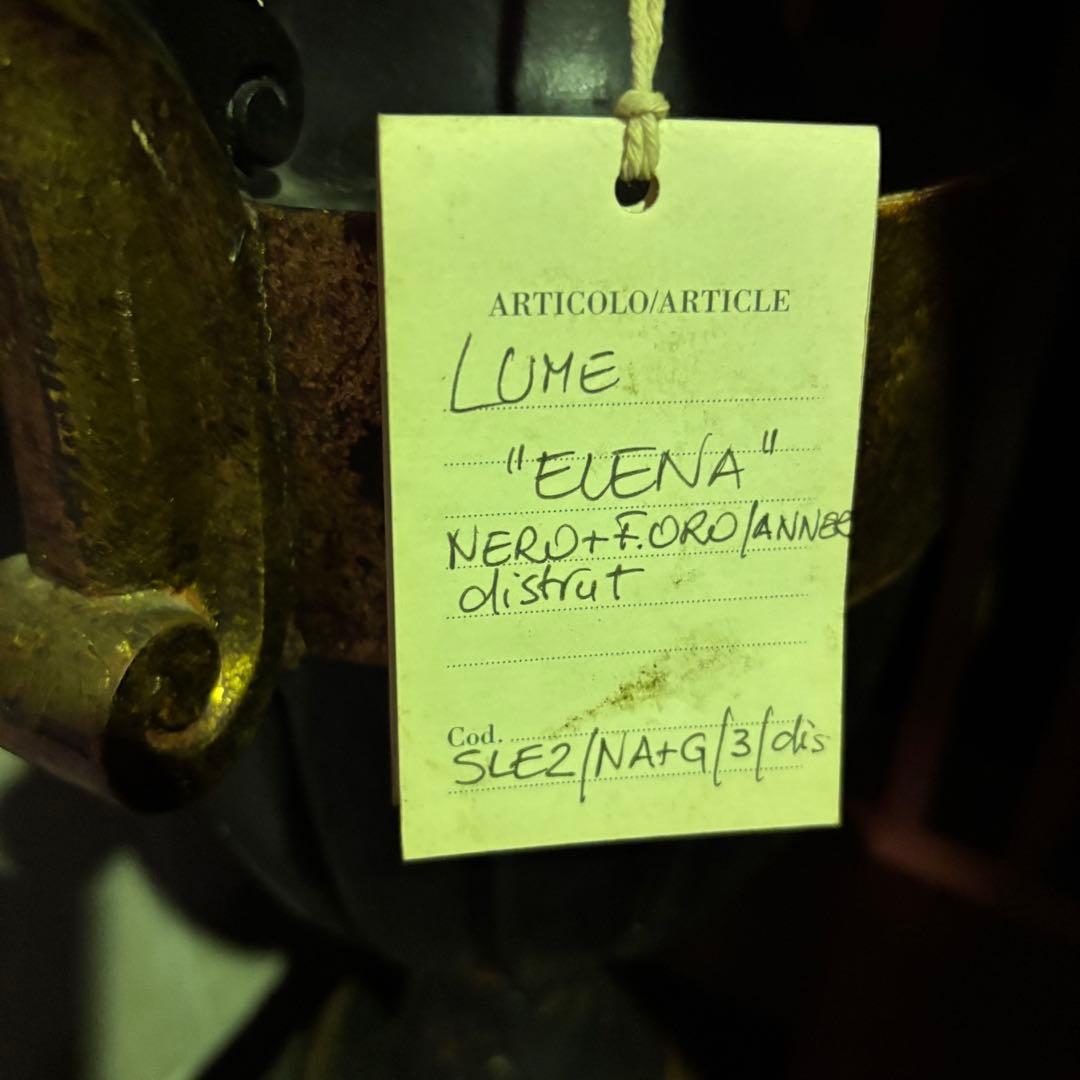 ARTICOLO/ARTICLE
LUME
"ELENA"
NERO+F.ORO/ANNER
distrut
Cod.
SLE2/NA+G/3/dis